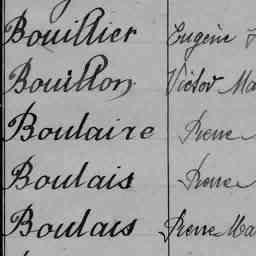 Bouillier Eugène
Bouillon Victor Ma
Boulaire Pierre
Boulais Pierre
Boulais Pierre Ma